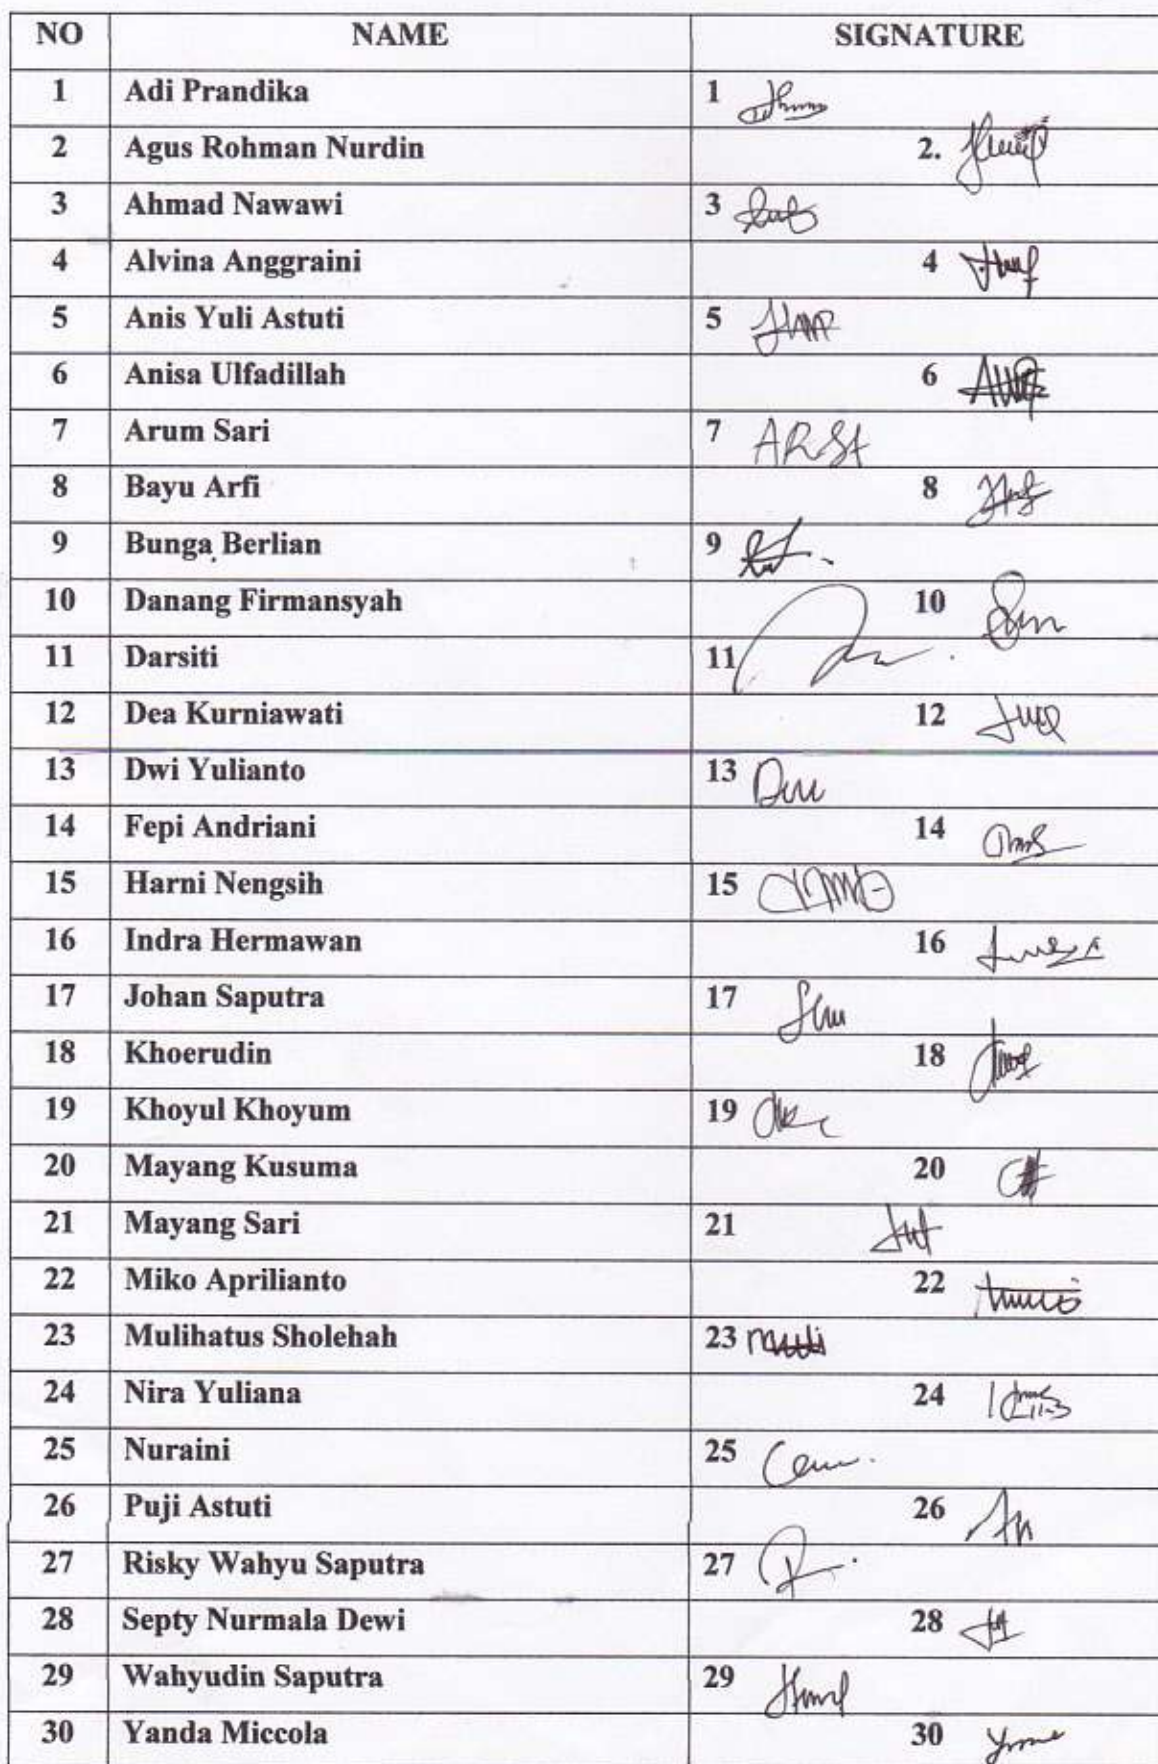 NO NAME SIGNATURE
1 Adi Prandika 1
2 Agus Rohman Nurdin 2.
3 Ahmad Nawawi 3
4 Alvina Anggraini 4
5 Anis Yuli Astuti 5
6 Anisa Ulfadillah 6
7 Arum Sari 7 ARSt
8 Bayu Arfi 8
9 Bunga Berlian 9
10 Danang Firmansyah 10
11 Darsiti 11
12 Dea Kurniawati 12
13 Dwi Yulianto 13
14 Fepi Andriani 14
15 Harni Nengsih 15
16 Indra Hermawan 16
17 Johan Saputra 17
18 Khoerudin 18
19 Khoyul Khoyum 19
20 Mayang Kusuma 20
21 Mayang Sari 21
22 Miko Aprilianto 22
23 Mulihatus Sholehah 23
24 Nira Yuliana 24
25 Nuraini 25
26 Puji Astuti 26
27 Risky Wahyu Saputra 27
28 Septy Nurmala Dewi 28
29 Wahyudin Saputra 29
30 Yanda Miccola 30